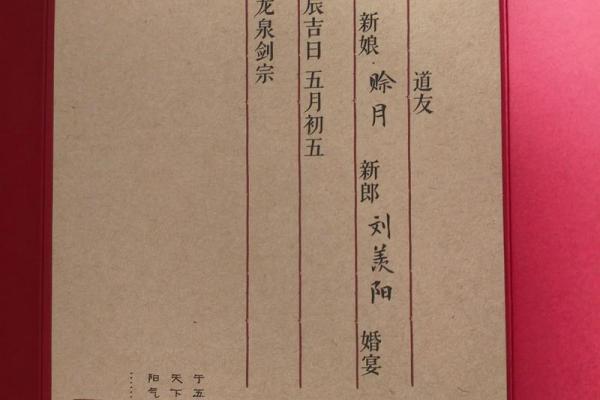 道友
新娘 赊月 新郎 刘羡阳 婚宴
辰吉日 五月初五
龙泉剑宗
于五
天下
阳气
……